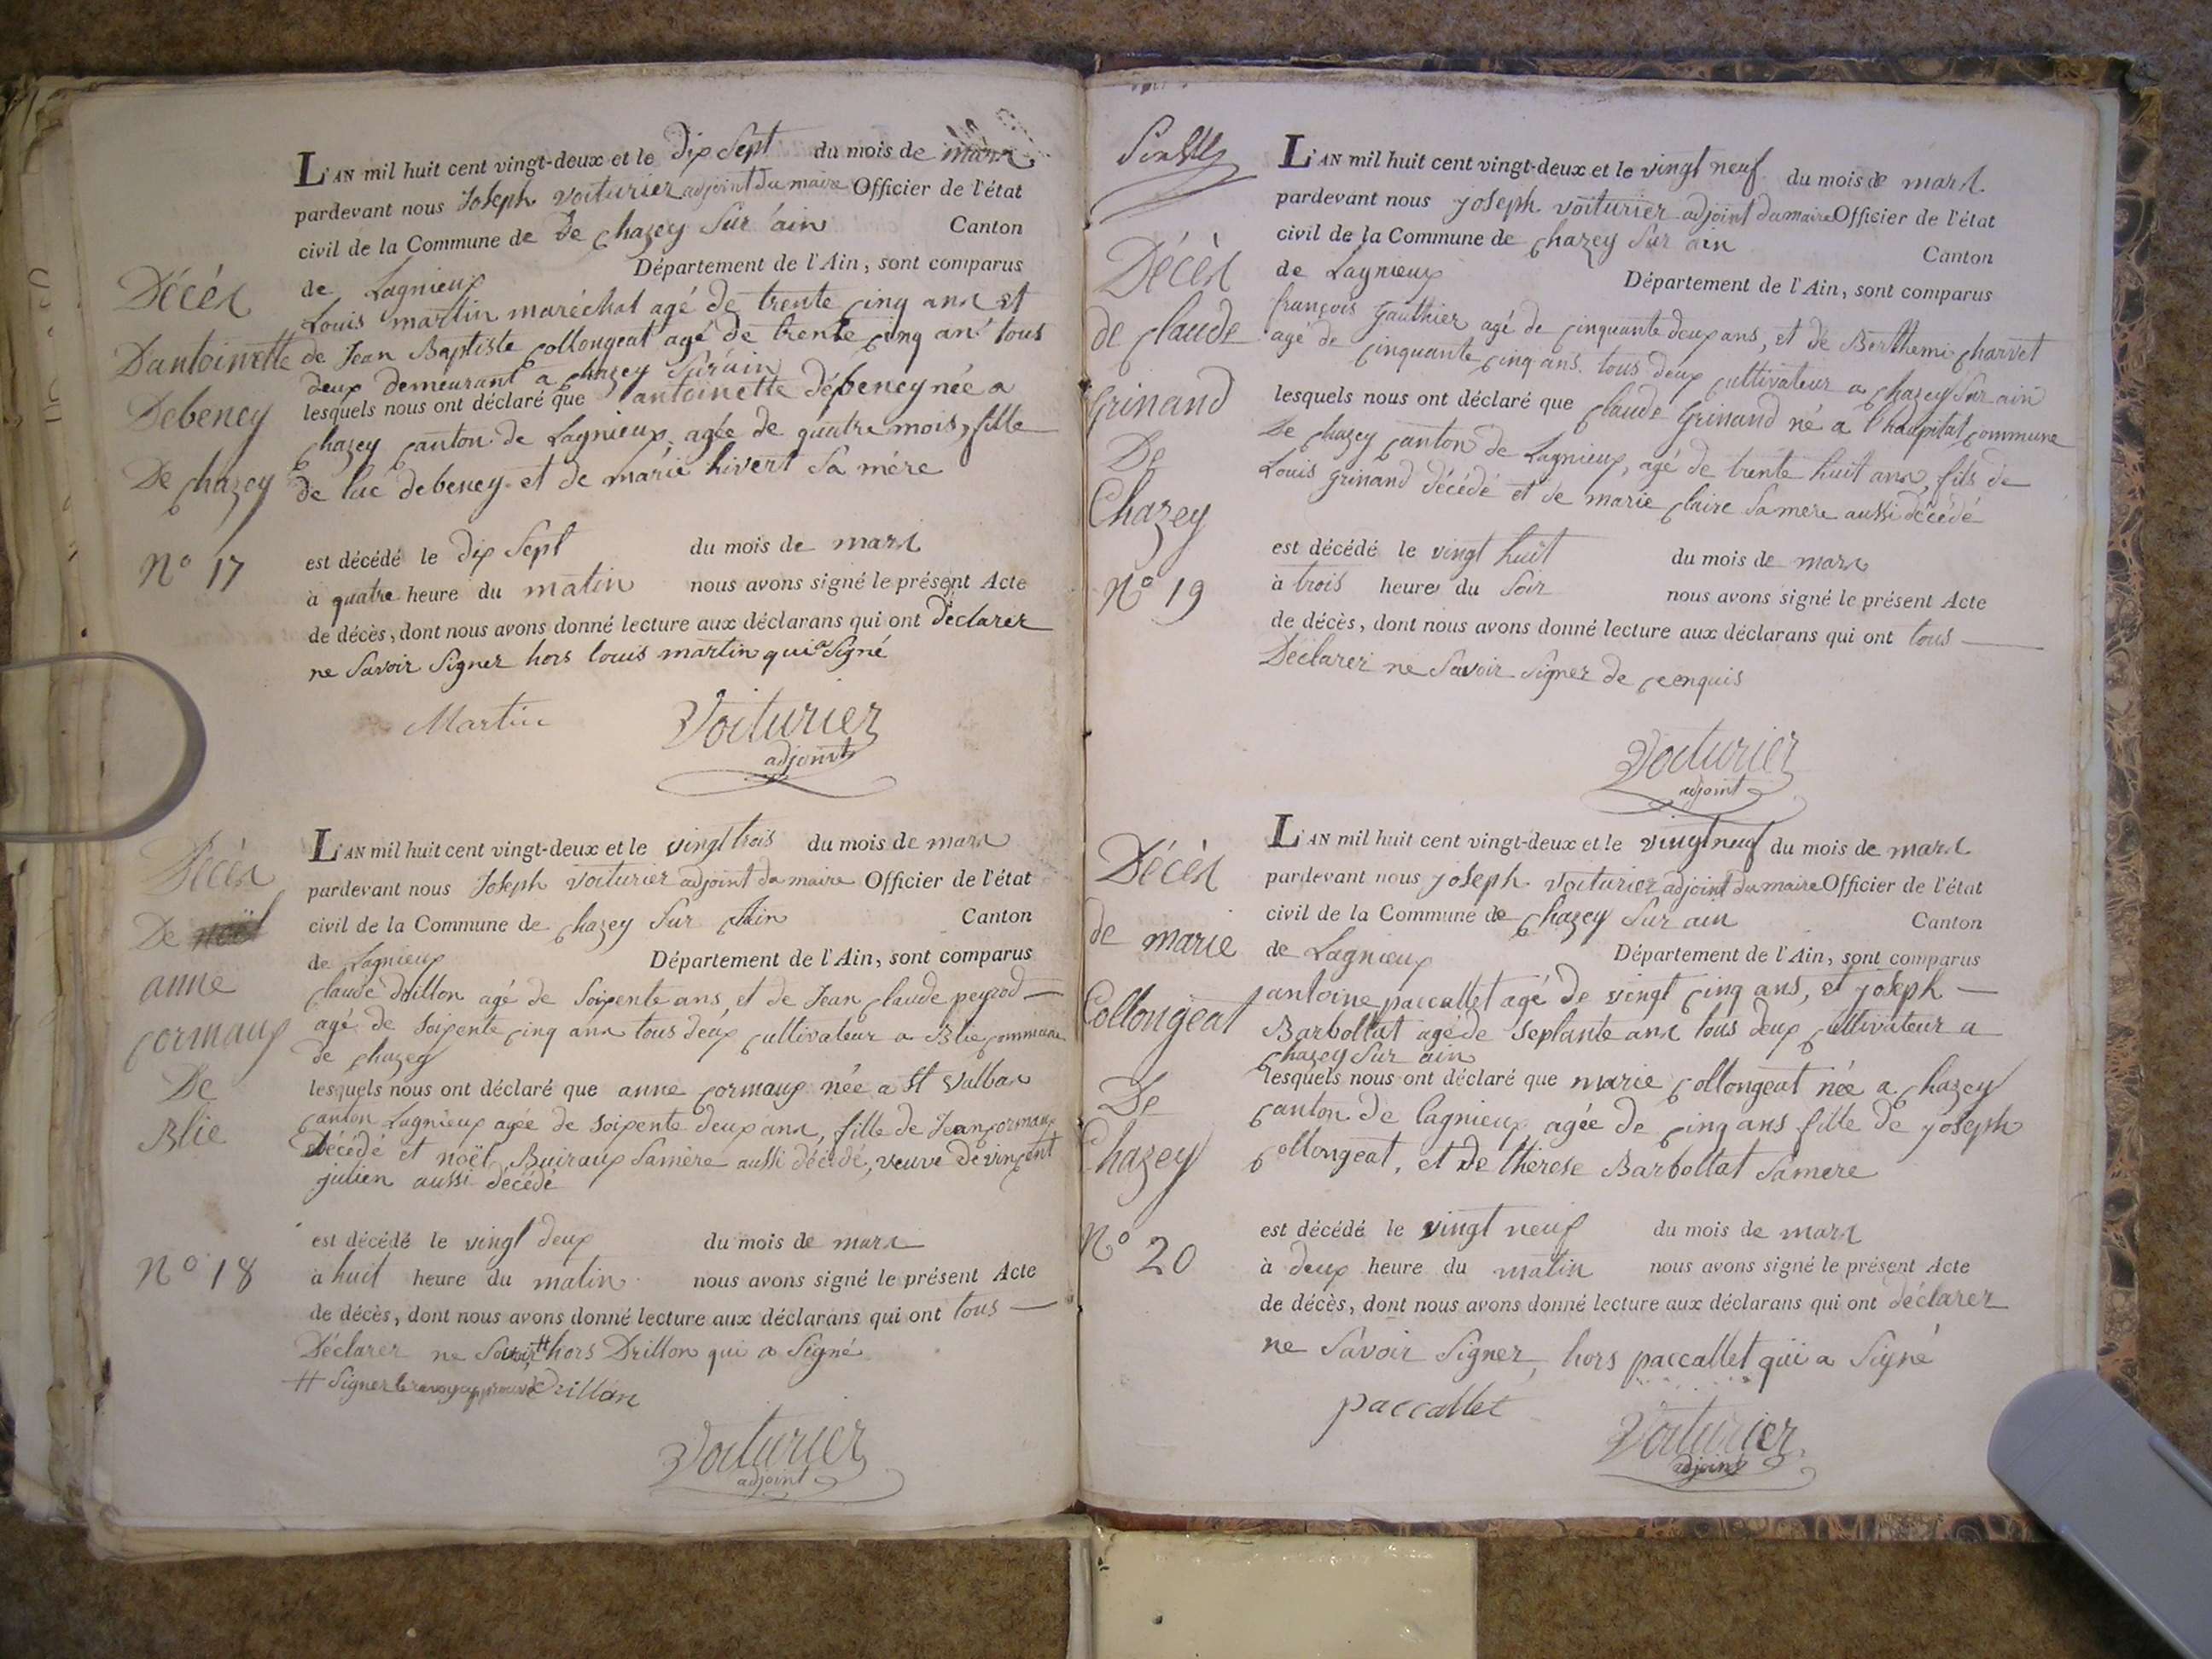 Décès
Dantoinette
Debeney
De chazey
N° 17
L'AN mil huit cent vingt-deux et le dix sept du mois de mars
pardevant nous Joseph voiturier adjoint du maire Officier de l'état
civil de la Commune de De chazey sur ain Canton
de Lagnieux Département de l'Ain, sont comparus
Louis martin maréchal agé de trente cinq ans et
de Jean Baptiste collongeat agé de trente cinq ans tous
deux demeurant a chazey sur ain
lesquels nous ont déclaré que antoinette debeney née a
chazey canton de Lagnieux agée de quatre mois, fille
de luc debeney et de marie hivert sa mére
est décédé le dix sept du mois de mars
à quatre heure du matin nous avons signé le présent Acte
de décès, dont nous avons donné lecture aux déclarans qui ont déclarer
ne savoir signer hors louis martin qui a signé
Martin Voiturier
adjoint
Décès
De
anne
cormaux
De
Blie
N° 18
L'AN mil huit cent vingt-deux et le vingt trois du mois de mars
pardevant nous Joseph voiturier adjoint du maire Officier de l'état
civil de la Commune de chazey sur Ain Canton
de Lagnieux Département de l'Ain, sont comparus
claude drillon agé de soixente ans, et de Jean claude peyrod
agé de soixente cinq ans tous deux cultivateur a Blie commune
de chazey
lesquels nous ont déclaré que anne cormaux née a St vulbas
canton Lagnieux agée de soixente deux ans, fille de Jean cormaux
décédé et noël Buiraux sa mère aussi décédé, veuve de vincent
julien aussi décédé
est décédé le vingt deux du mois de mars
à huit heure du matin nous avons signé le présent Acte
de décès, dont nous avons donné lecture aux déclarans qui ont tous
Déclarer ne savoir # hors Drillon qui a signé
# signer le renvoy approuvé Drillon
Voiturier
adjoint
Décès
de claude
Grinand
De
Chazey
N° 19
L'AN mil huit cent vingt-deux et le vingt neuf du mois de mars
pardevant nous joseph voiturier adjoint du maire Officier de l'état
civil de la Commune de chazey sur ain Canton
de Lagnieux Département de l'Ain, sont comparus
françois Gauthier agé de cinquante deux ans, et de Berthemi charvet
agé de cinquante cinq ans tous deux cultivateur a chazey sur ain
lesquels nous ont déclaré que claude Grinand né a l'haupital commune
De chazey canton de Lagnieux, agé de trente huit ans, fils de
Louis grinand décédé et de marie claire sa mere aussi décédé
est décédé le vingt huit du mois de mars
à trois heure du soir nous avons signé le présent Acte
de décès, dont nous avons donné lecture aux déclarans qui ont tous
Déclarer ne savoir signer de ce enquis
Voiturier
adjoint
Décès
de marie
Collongeat
De
Chazey
N° 20
L'AN mil huit cent vingt-deux et le vingt neuf du mois de mars
pardevant nous joseph voiturier adjoint du maire Officier de l'état
civil de la Commune de chazey sur ain Canton
de Lagnieux Département de l'Ain, sont comparus
antoine paccallet agé de vingt cinq ans, et joseph
Barbollat agé de septante ans tous deux cultivateur a
chazey sur ain
lesquels nous ont déclaré que marie collongeat née a chazey
canton de lagnieux agée de cinq ans fille de joseph
collongeat, et de thérese Barbollat sa mere
est décédé le vingt neuf du mois de mars
à deux heure du matin nous avons signé le présent Acte
de décès, dont nous avons donné lecture aux déclarans qui ont déclarer
ne savoir signer, hors paccallet qui a signé
paccallet
Voiturier
adjoint